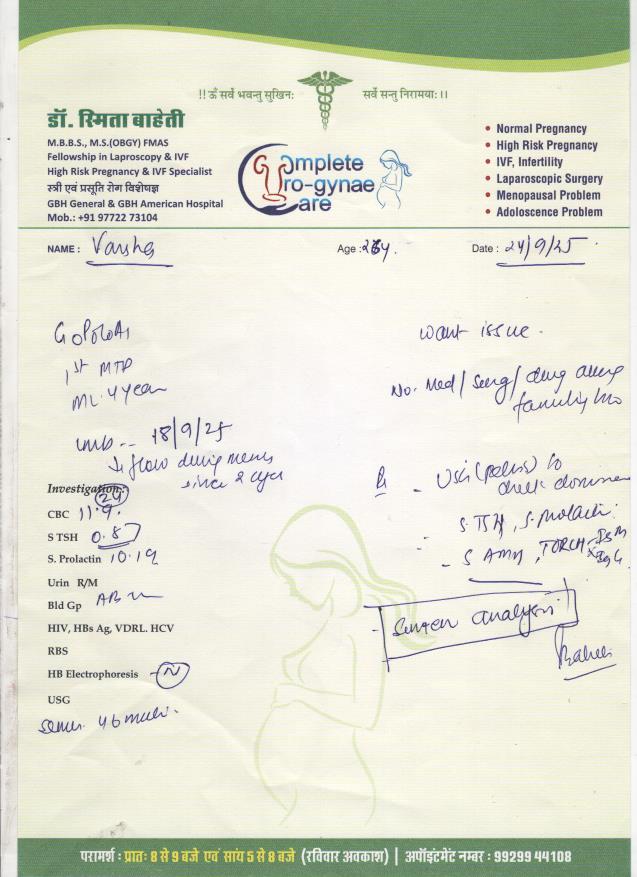 !! ॐ सर्वे भवन्तु सुखिनः सर्वे सन्तु निरामयाः ।।
डॉ. स्मिता बाहेती
M.B.B.S., M.S.(OBGY) FMAS
Fellowship in Laproscopy & IVF
High Risk Pregnancy & IVF Specialist
स्त्री एवं प्रसूति रोग विशेषज्ञ
GBH General & GBH American Hospital
Mob.: +91 97722 73104
Complete
Uro-gynae
Care
• Normal Pregnancy
• High Risk Pregnancy
• IVF, Infertility
• Laparoscopic Surgery
• Menopausal Problem
• Adoloscence Problem
NAME : Varsha Age : Date : 24/9/25
G0P0L0A1
1st MTP
ML. 4 year
LMP -- 18/9/25
↓ flow during menses
since 2 cycle
want issue.
No. Med / Surg / drug
family h/o
Investigation:
24
CBC 11.9.
S TSH 0.87
S. Prolactin 10.19
Urin R/M
Bld Gp AB
HIV, HBs Ag, VDRL. HCV
RBS
HB Electrophoresis - N
USG
Semen. 46 mill.
- USG (pelvis) to
check
- S. TSH, S. Prolactin.
- S AMH, TORCH IgM
IgG
- Semen analysis.
परामर्श : प्रातः 8 से 9 बजे एवं सांय 5 से 8 बजे (रविवार अवकाश) | अपॉइंटमेंट नम्बर : 99299 44108